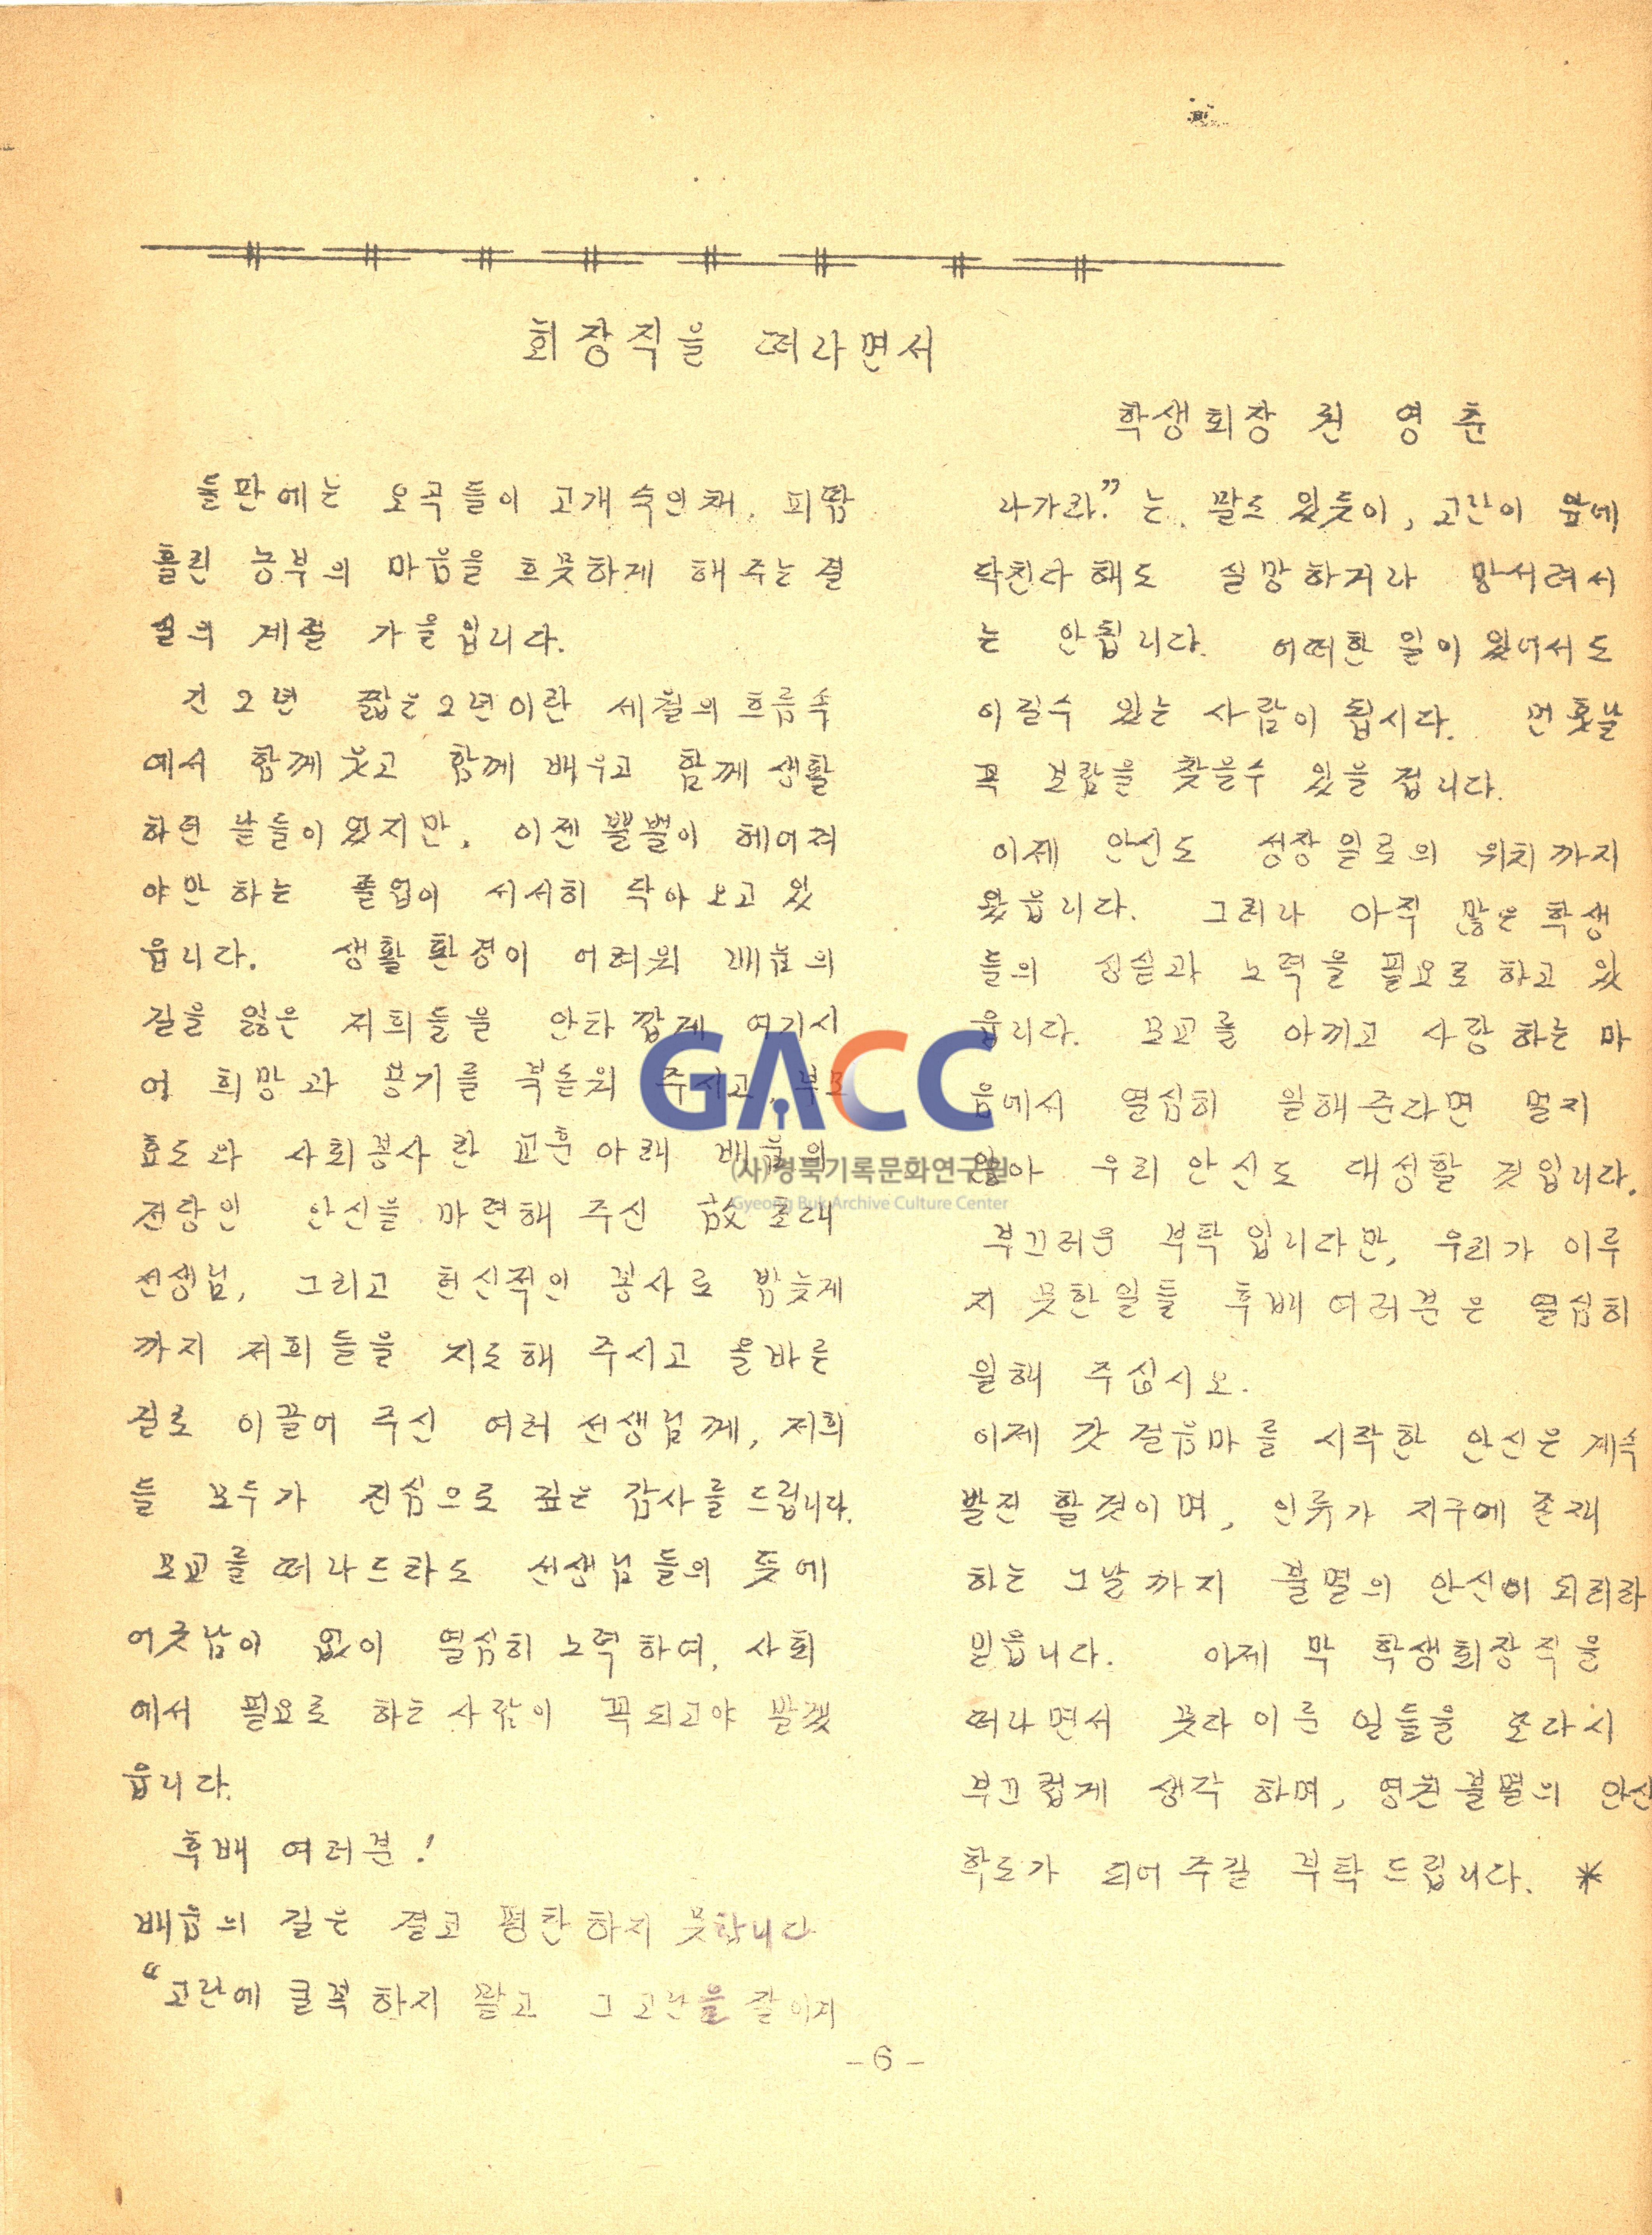 회장직을 떠나면서
학생회장 권 영 춘
들판에는 오곡들이 고개 숙인채. 피땀
흘린 농부의 마음을 흐뭇하게 해 주는 결
실의 계절 가을입니다.
긴 2년 짧은 2년이란 세월의 흐름속
에서 함께 웃고 함께 배우고 함께 생활
하던 날들이 였지만, 이젠 뿔뿔이 헤어져
야만 하는 졸업이 서서히 닥아 오고 있
읍니다. 생활 환경이 어려워 배움의
길을 잃은 저희들을 안타깝게 여기시
어 희망과 용기를 북돋워 주시고, 부모
효도와 사회봉사란 교훈 아래 배움의
전당인 안신을 마련해 주신 故 초대
선생님, 그리고 헌신적인 봉사로 밤늦게
까지 저희들을 지도해 주시고 올바른
길로 이끌어 주신 여러 선생님께, 저희
들 모두가 진심으로 깊은 감사를 드립니다.
모교를 떠나드라도 선생님들의 뜻에
어긋남이 없이 열심히 노력하여, 사회
에서 필요로 하는 사람이 꼭 되고야 말겠
읍니다.
후배 여러분!
배움의 길은 결코 평탄하지 못합니다
“고난에 굴복하지 말고 그 고난을
나가라.” 는 말도 있듯이, 고난이 앞에
닥친다 해도 실망하거나 망서려서
는 안됩니다. 어떠한 일이 있어서도
이길수 있는 사람이 됩시다. 먼 훗날
꼭 보람을 찾을수 있을 겁니다.
이제 안신도 성장 일로의 위치까지
왔읍니다. 그러나 아직 많은 학생
들의 성실과 노력을 필요로 하고 있
읍니다. 모교를 아끼고 사랑하는 마
음에서 열심히 일해준다면 멀지
않아 우리 안신도 대성할 것입니다.
부끄러운 부탁입니다만, 우리가 이루
지 못한일들 후배 여러분은 열심히
일해 주십시오.
이제 갓 걸음마를 시작한 안신은 계속
발전 할것이며, 인류가 지구에 존재
하는 그날까지 불멸의 안신이 되리라
믿읍니다. 이제 막 학생회장직을
떠나면서 못다 이룬 일들을 또다시
부끄럽게 생각 하며, 영원불멸의 안신
학도가 되어 주길 부탁드립니다. *
- 6 -
GACC
(사)경북기록문화연구원
Gyeong Buk Archive Culture Center